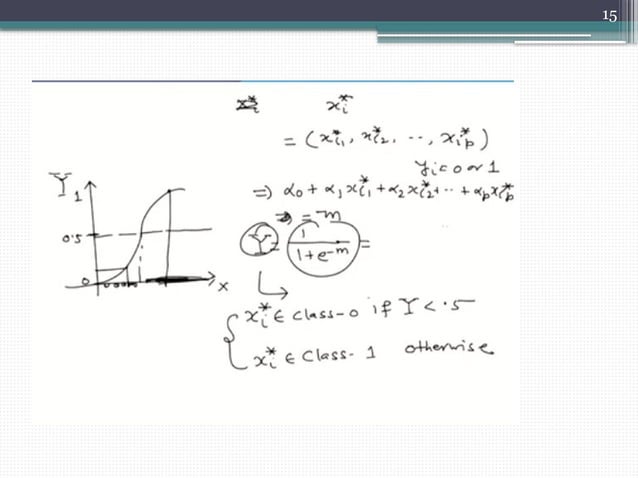 15
x_i^*
= (x_{i1}^*, x_{i2}^*, ..., x_{ip}^*)
y_i = 0 or 1
⇒ α_0 + α_1 x_{i1}^* + α_2 x_{i2}^* + .. + α_p x_{ip}^*
= m
Y = 1 / (1 + e^{-m}) =
x_i^* ∈ class-0 if Y < .5
x_i^* ∈ class-1 otherwise
Y
1
0.5
0
x